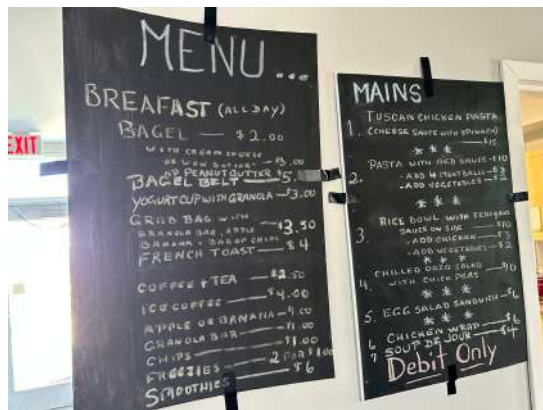 MENU...
BREAFAST (ALL DAY)
BAGEL — $2.00
WITH CREAM CHEESE
OR WOW BUTTER — $3.00
NO PEANUT BUTTER
BAGEL BELT — $5.
YOGURT CUP WITH GRANOLA — $3.00
GRAB BAG WITH
GRANOLA BAR, APPLE
BANANA - BAR OF CHIPS — $3.50
FRENCH TOAST — $4
COFFEE + TEA — $2.50
ICE COFFEE — $4.00
APPLE OR BANANA — $1.00
GRANOLA BAR — $1.00
CHIPS — $1.00
FREEZIES — 2 FOR $1.00
SMOOTHIES — $6
EXIT
MAINS
1. TUSCAN CHICKEN PASTA
(CHEESE SAUCE WITH SPINACH)
$15
***
2. PASTA WITH RED SAUCE - $10
- ADD 4 MEATBALLS - $3
- ADD VEGETABLES - $2
***
3. RICE BOWL WITH TERIYAKI
SAUCE ON SIDE — $10
- ADD CHICKEN — $3
- ADD VEGETABLES — $2
***
4. CHILLED ORZO SALAD — $10
WITH CHICK PEAS
***
5. EGG SALAD SANDWICH — $6
***
6 CHICKEN WRAP — $6
7 SOUP DE JOUR — $4
Debit Only